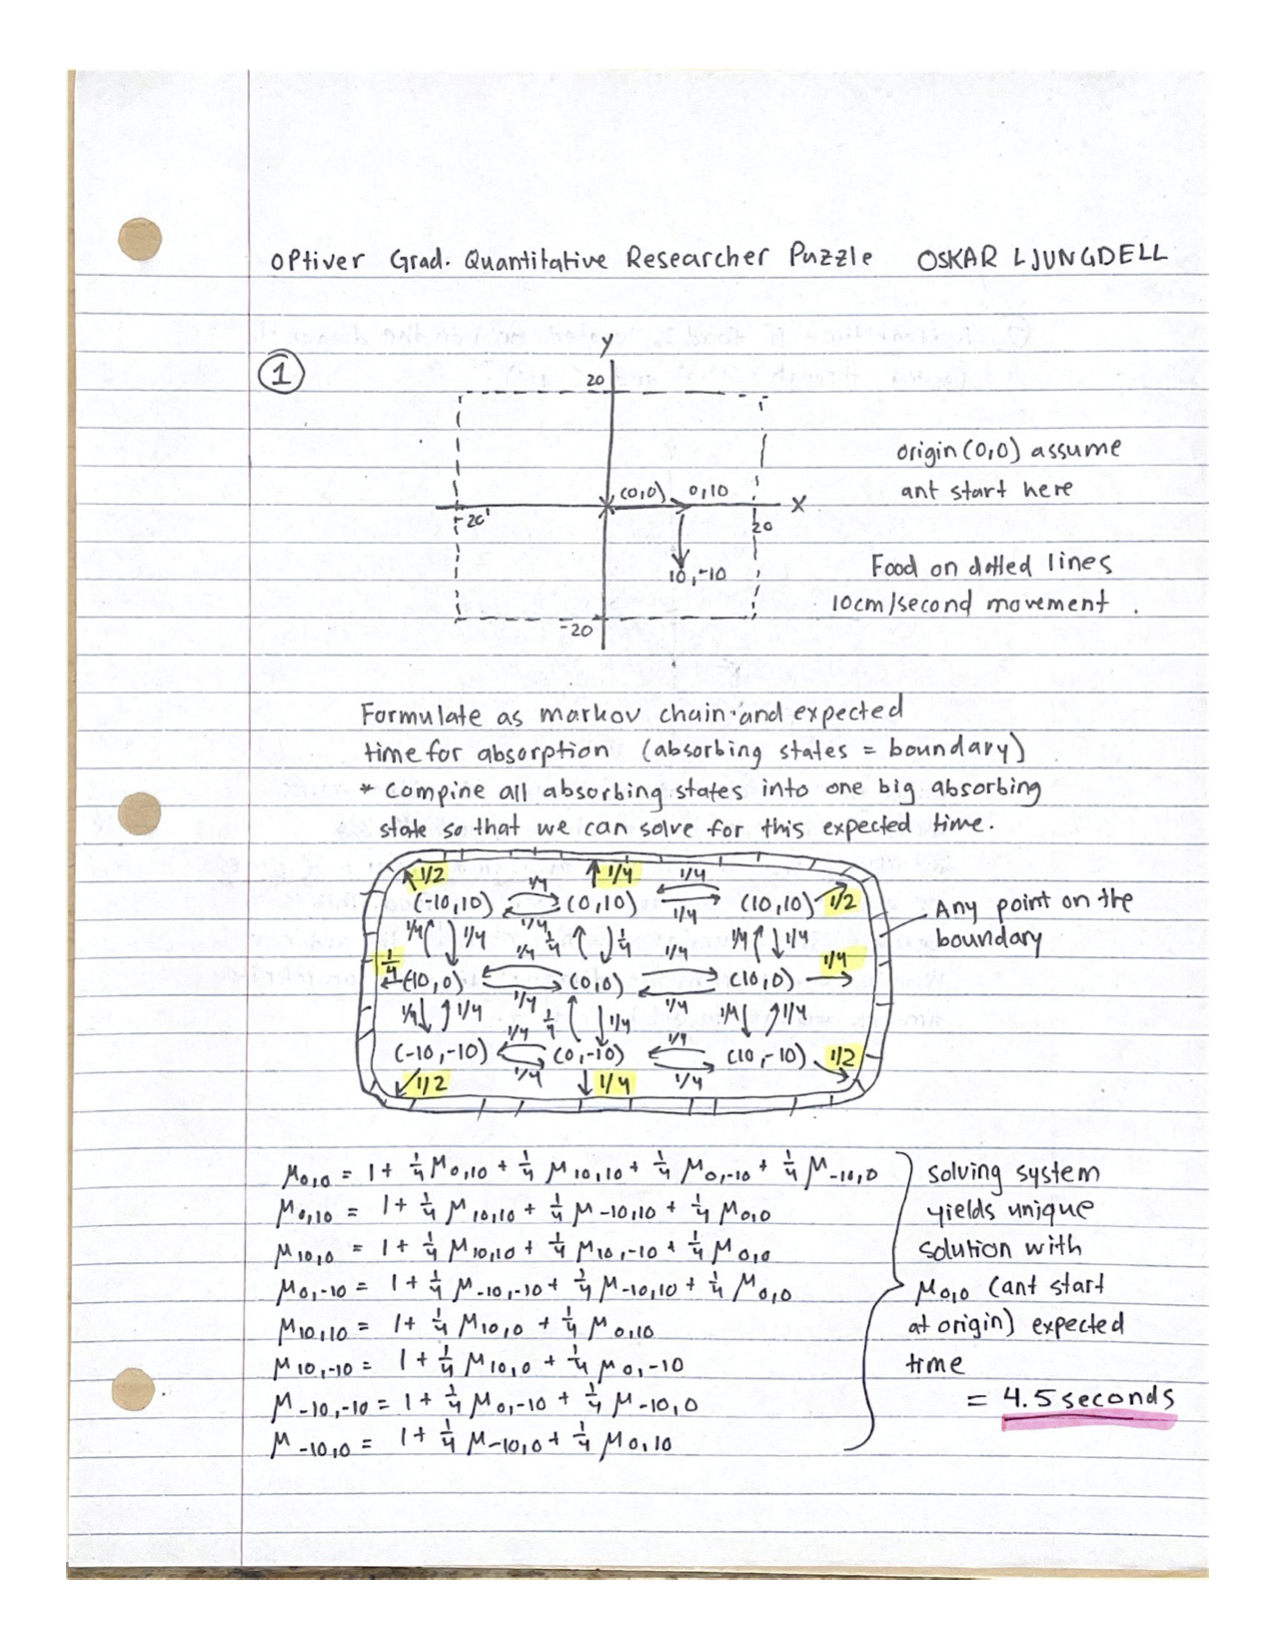 OPtiver Grad. Quantitative Researcher Puzzle OSKAR LJUNGDELL
1
y
20
origin (0,0) assume
ant start here
(0,0) 0,10
X
-20
20
Food on dotted lines
10,-10
10cm/second movement .
-20
Formulate as markov chain and expected
time for absorption (absorbing states = boundary)
* Compine all absorbing states into one big absorbing
state so that we can solve for this expected time.
1/2 1/4 1/4
1/4
(-10,10) (0,10) (10,10) 1/2
1/4 1/4
Any point on the
boundary
1/4 1/4 1/4 1/4 1/4 1/4 1/4 1/4
1/4 1/4
(10,0) (0,0) (10,0)
1/4 1/4
1/4 1/4 1/4 1/4 1/4 1/4 1/4
(-10,-10) (0,-10) (10,-10) 1/2
1/4 1/4
1/2 1/4
μ0,0 = 1 + 1/4 μ0,10 + 1/4 μ10,10 + 1/4 μ0,-10 + 1/4 μ-10,0
μ0,10 = 1 + 1/4 μ10,10 + 1/4 μ-10,10 + 1/4 μ0,0
μ10,0 = 1 + 1/4 μ10,10 + 1/4 μ10,-10 + 1/4 μ0,0
μ0,-10 = 1 + 1/4 μ-10,-10 + 1/4 μ-10,10 + 1/4 μ0,0
μ10,10 = 1 + 1/4 μ10,0 + 1/4 μ0,10
μ10,-10 = 1 + 1/4 μ10,0 + 1/4 μ0,-10
μ-10,-10 = 1 + 1/4 μ0,-10 + 1/4 μ-10,0
μ-10,0 = 1 + 1/4 μ-10,0 + 1/4 μ0,10
solving system
yields unique
solution with
μ0,0 (ant start
at origin) expected
time
= 4.5 seconds